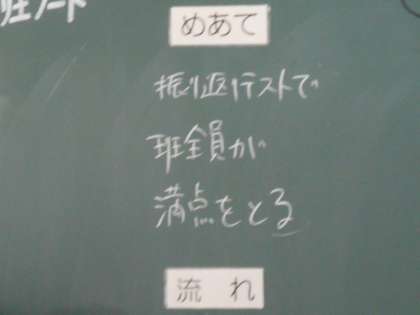 めあて
振り返りテストで
班全員が
満点をとる
流れ